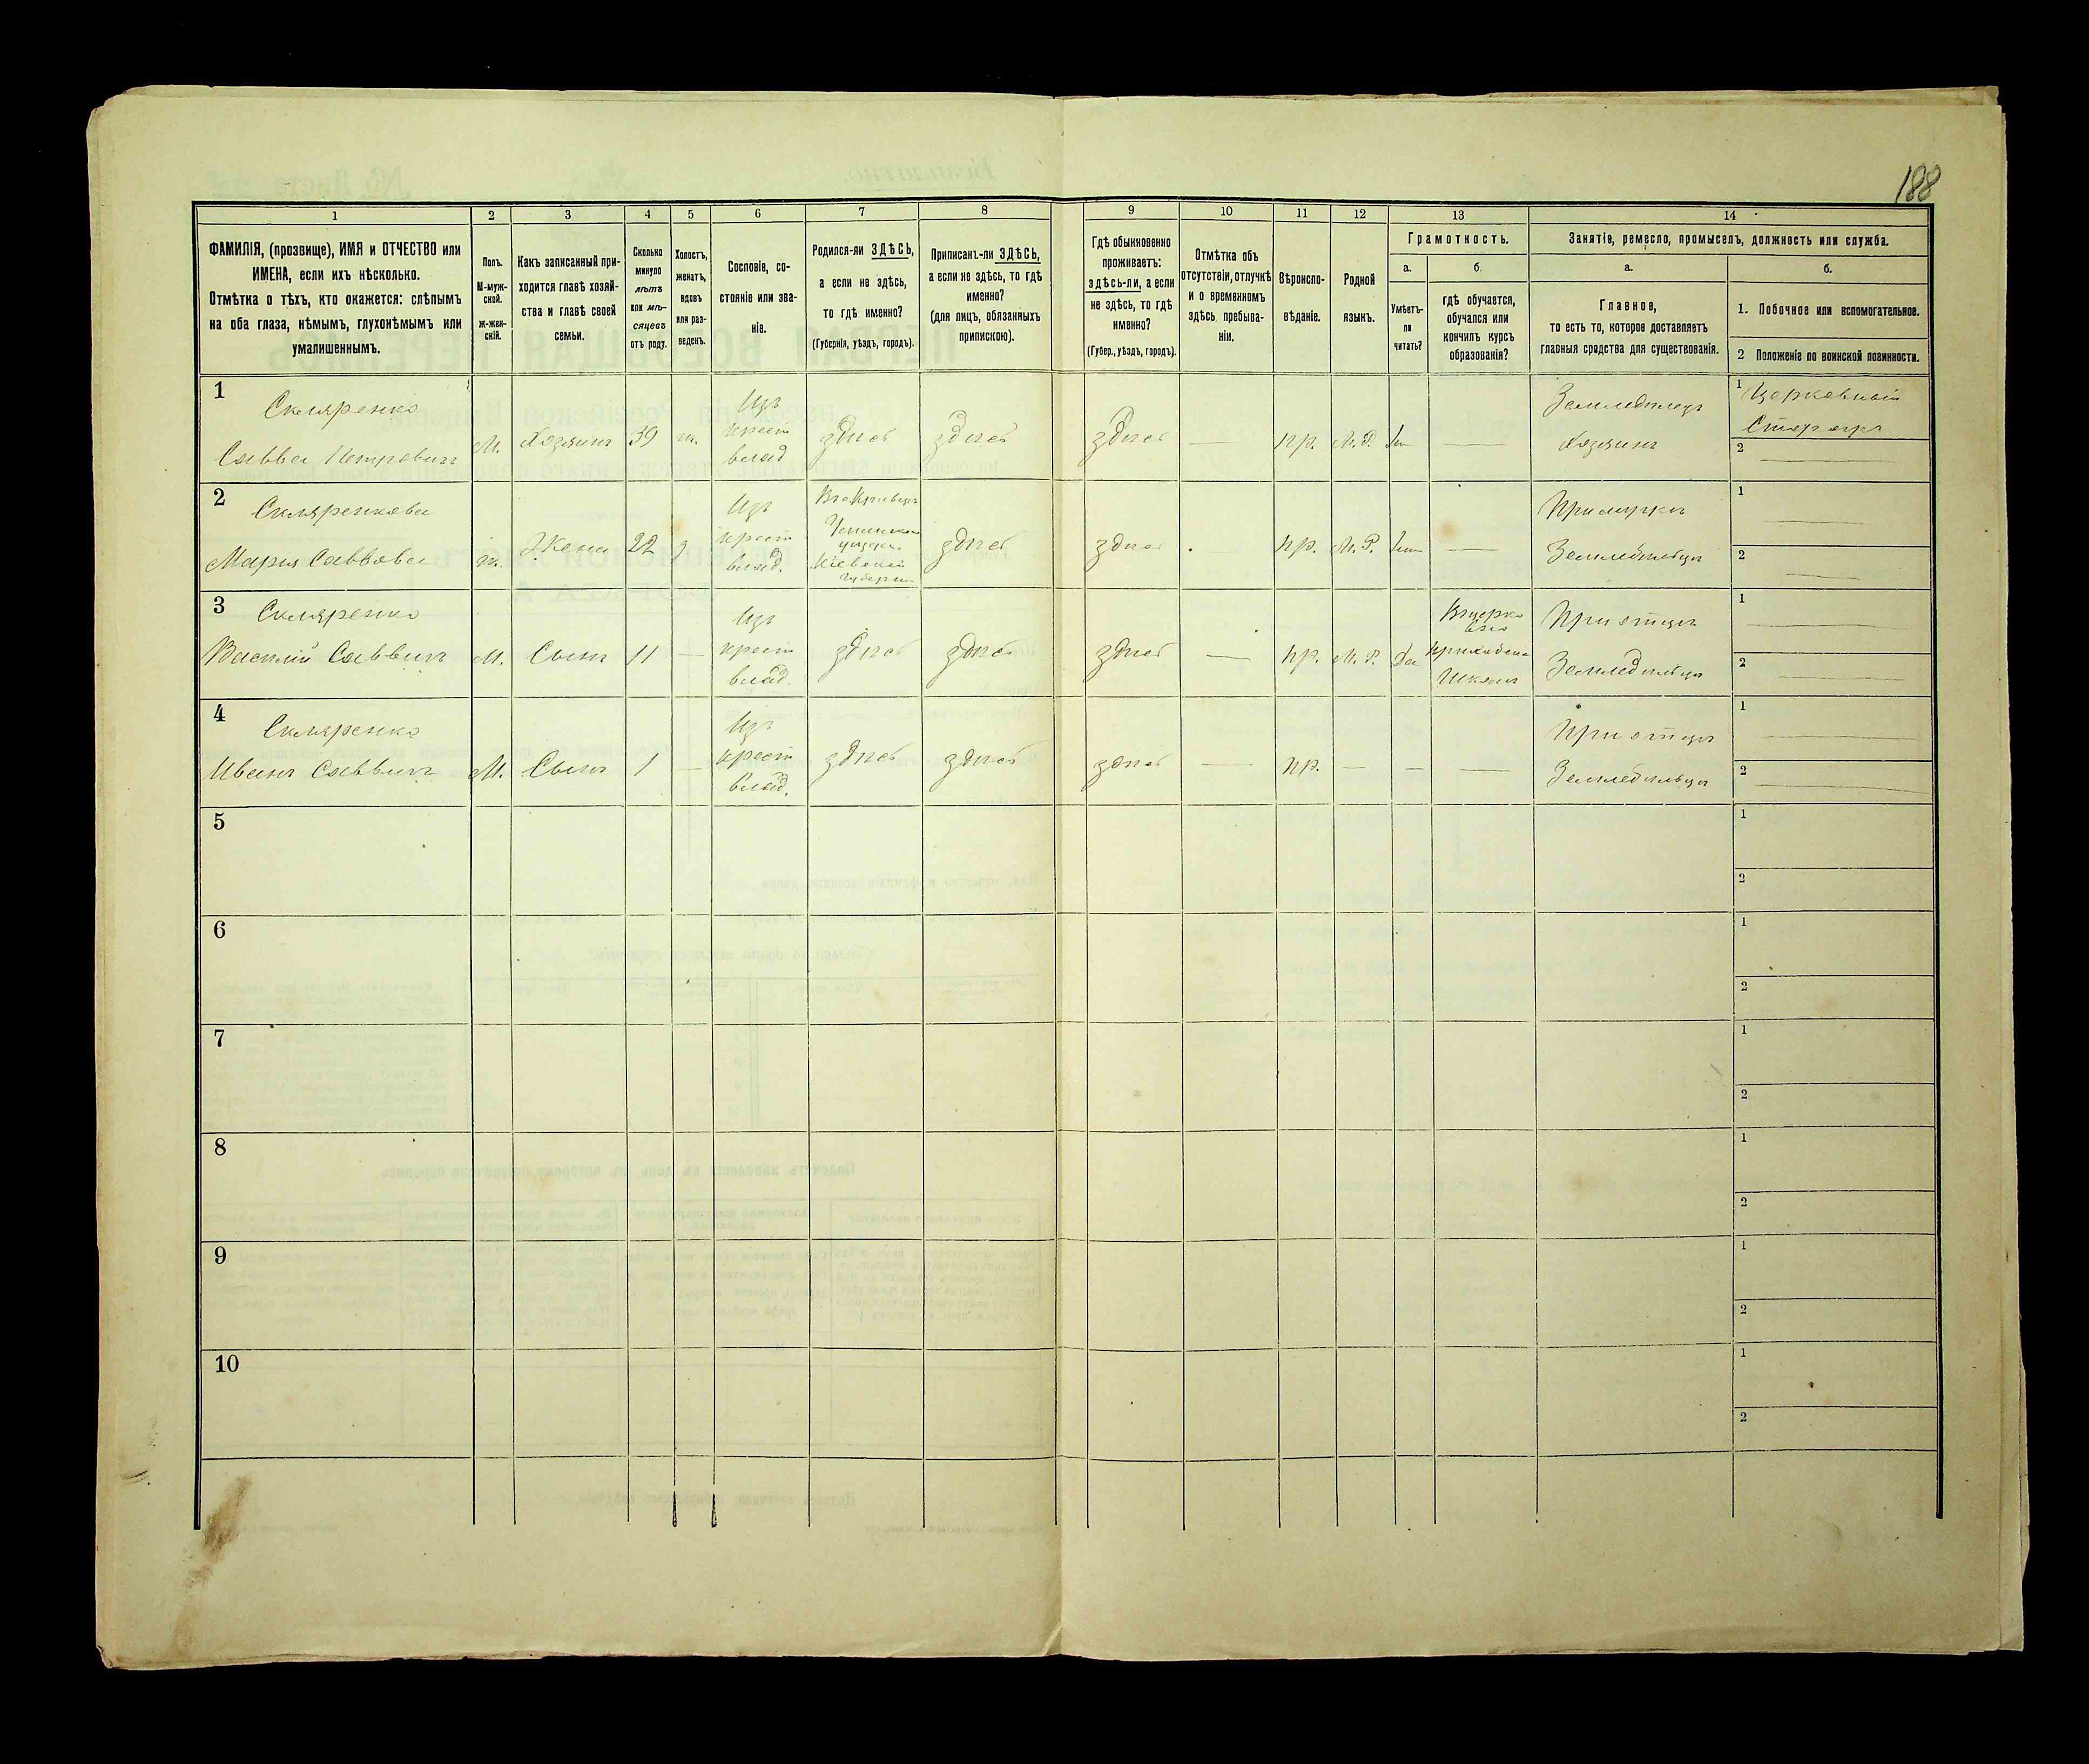 188
1 2 3 4 5 6 7 8 9 10 11 12 13 14
ФАМИЛІЯ, (прозвище), ИМЯ и ОТЧЕСТВО или
ИМЕНА, если ихъ нѣсколько.
Отмѣтка о тѣхъ, кто окажется: слѣпымъ
на оба глаза, нѣмымъ, глухонѣмымъ или
умалишеннымъ.
Полъ.
М-муж-
ской.
ж-жен-
скій.
Какъ записанный при-
ходится главѣ хозяй-
ства и главѣ своей
семьи.
Сколько
минуло
лѣтъ
или мѣ-
сяцевъ
отъ роду.
Холостъ,
женатъ,
вдовъ
или раз-
веденъ.
Сословіе, со-
стояніе или зва-
ніе.
Родился-ли ЗДѢСЬ,
а если не здѣсь,
то гдѣ именно?
(Губернія, уѣздъ, городъ).
Приписанъ-ли ЗДѢСЬ,
а если не здѣсь, то гдѣ
именно?
(для лицъ, обязанныхъ
припискою).
Гдѣ обыкновенно
проживаетъ:
здѣсь-ли, а если
не здѣсь, то гдѣ
именно?
(Губер., уѣздъ, городъ).
Отмѣтка объ
отсутствіи, отлучкѣ
и о временномъ
здѣсь пребыва-
ніи.
Вѣроиспо-
вѣданіе.
Родной
языкъ.
Грамотность.
а.
Умѣетъ-
ли
читать?
б.
гдѣ обучается,
обучался или
кончилъ курсъ
образованія?
Занятіе, ремесло, промыселъ, должность или служба.
а.
Главное,
то есть то, которое доставляетъ
главныя средства для существованія.
б.
1. Побочное или вспомогательное.
2 Положеніе по воинской повинности.
1
Скляренко
Савва Петровичъ
М.
Хозяинъ
39
ж.
Изъ
крест
влад
здѣсь
здѣсь
здѣсь
—
пр.
М. Р.
—
Земледѣлецъ
Хозяинъ
1 Церковный
Сторожъ
2 —
2
Скляренкова
Мария Саввова
ж.
Жена
22
Изъ
крест
влад.
Кіевской
Губерніи
здѣсь
здѣсь
пр.
М. Р.
—
При мужѣ
Земледѣльцѣ
1 —
2 —
3
Скляренко
Василій Саввичъ
М.
Сынъ
11
—
Изъ
крест
влад.
здѣсь
здѣсь
здѣсь
—
пр.
М. Р.
Да
Вцерко
вно
приходской
Школѣ
При отцѣ
Земледѣльцѣ
1 —
2 —
4
Скляренко
Иванъ Саввичъ
М.
Сынъ
1
—
Изъ
крест
влад.
здѣсь
здѣсь
здѣсь
—
пр.
—
—
—
При отцѣ
Земледѣльцѣ
1 —
2 —
5
1
2
6
1
2
7
1
2
8
1
2
9
1
2
10
1
2